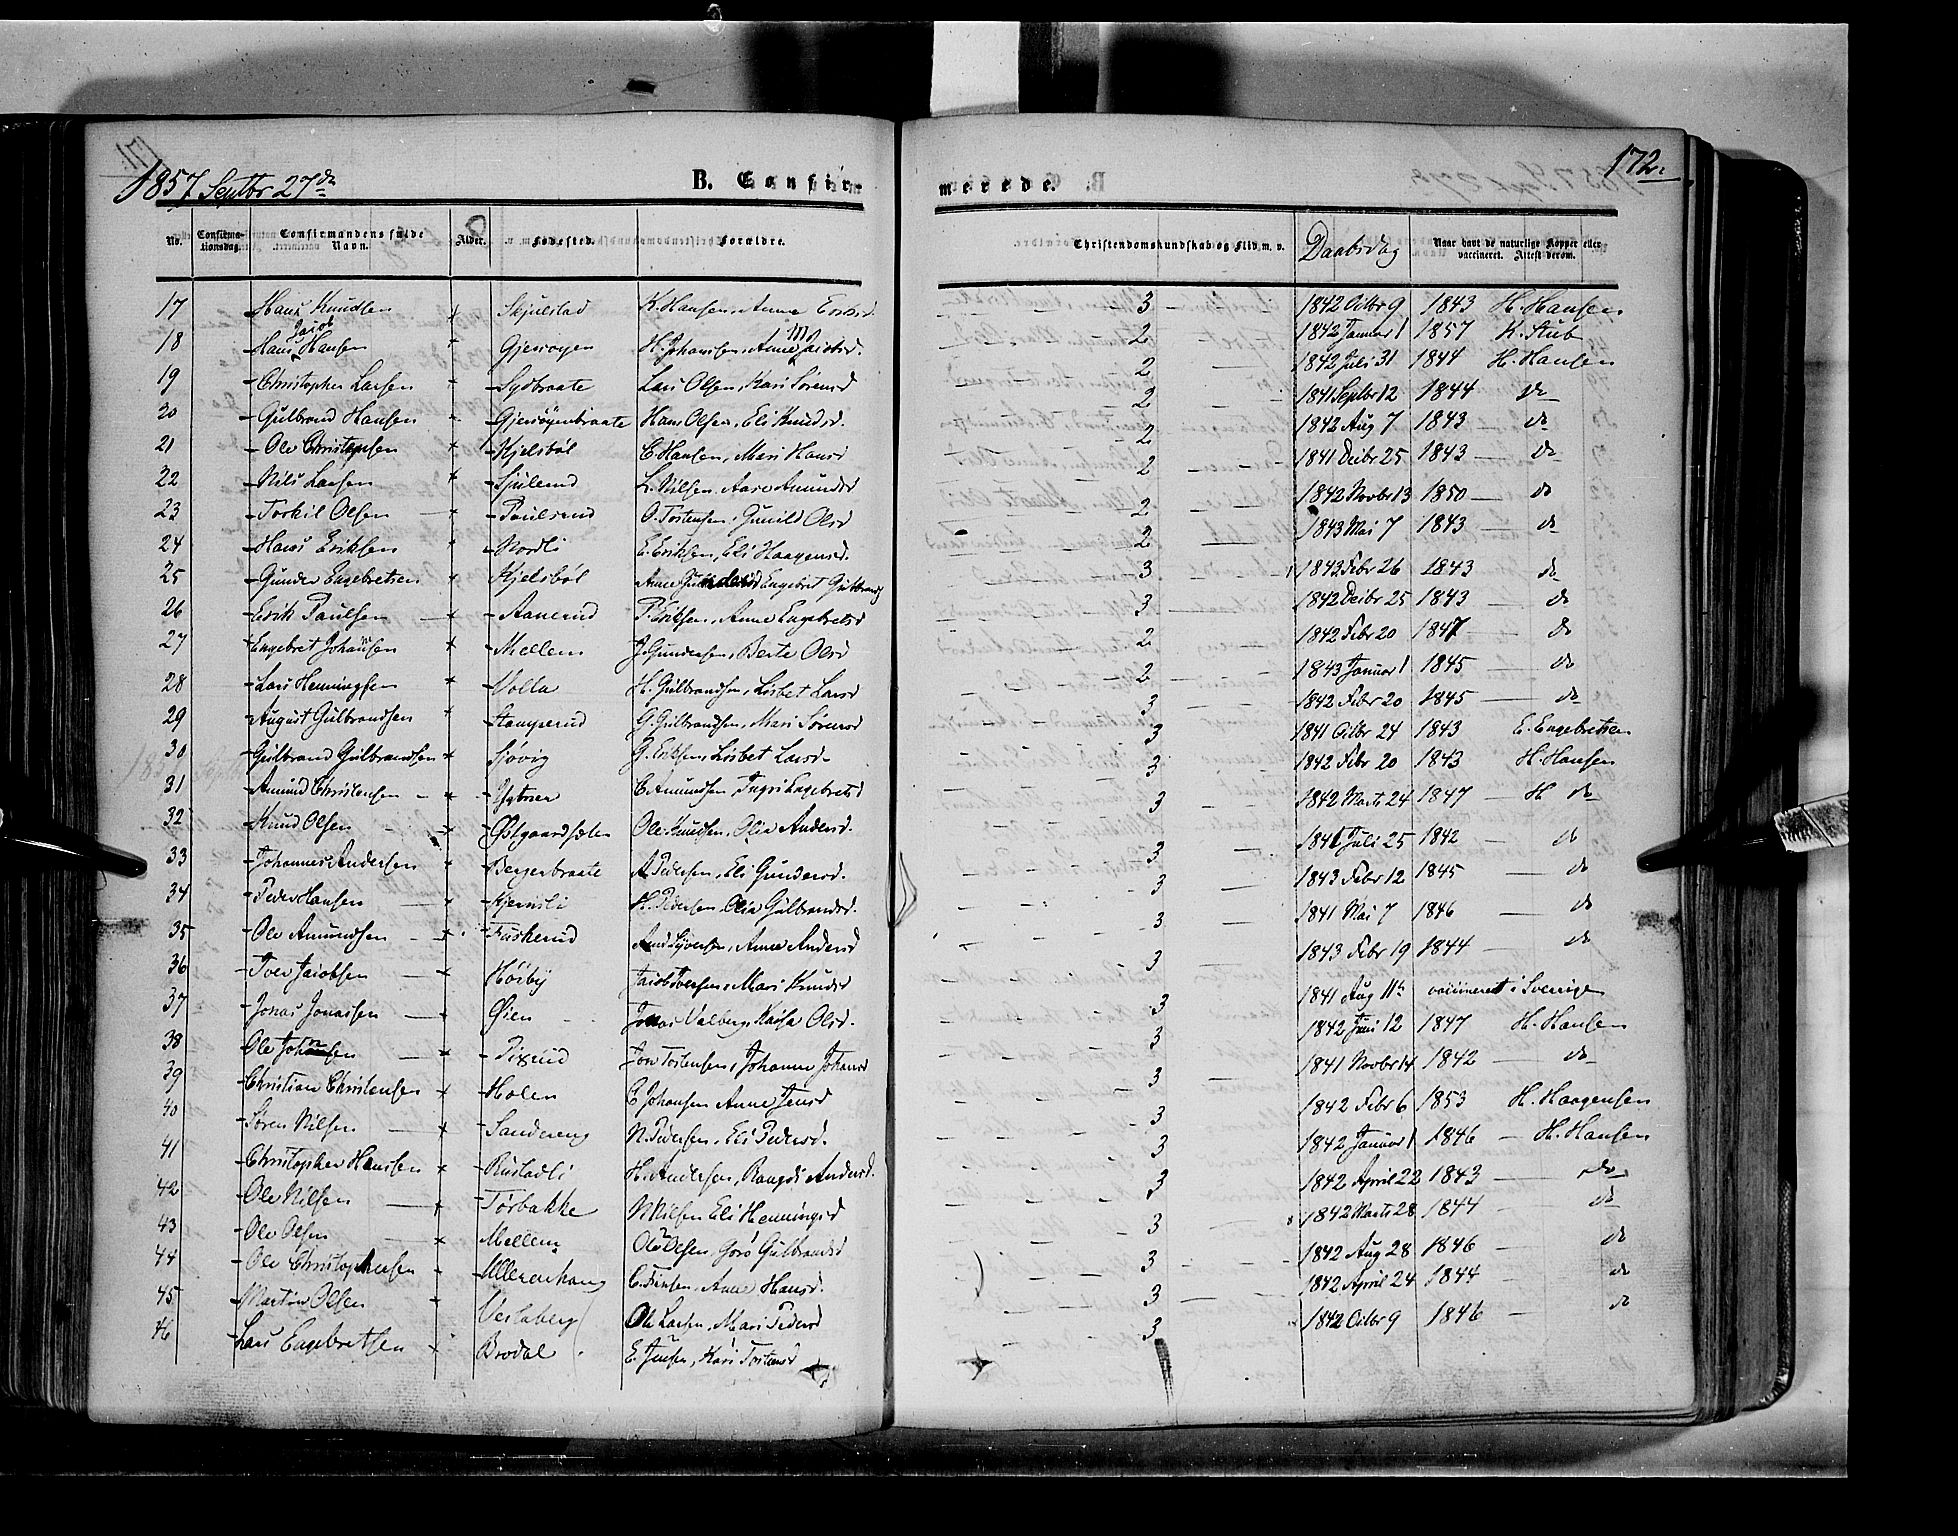 172.
1857 Septbr 27de
B. Confir
merede.
No. Confirmationsdag. Confirmandens fulde Navn. Alder. Fødested. Forældre. Christendomskundskab og Flid m. v. Daabsdag Naar havt de naturlige Kopper eller vaccineret. Attest derom.
17 Hans Knudsen Skjulstad K. Hansen, Anne Eriksd. 3 1842 Octbr 9 1843 H. Hansen
18 Hans Jacob Hansen Gjersøyen H. Johansen, Anne M Jacobsd. 2 1842 Januar 1 1857 K. Stub
19 Christopher Larsen Sydbraate Lars Olsen, Kari Sørensd 2 1842 Juli 31 1844 H. Hansen
20 Gulbrand Hansen Gjersøyenbraate Hans Olsen, Eli Knudsd. 2 1841 Septbr 12 1844 do
21 Ole Christophersen Kjelsbøl C. Hansen, Mari Hansd 2 1842 Aug 7 1843 do
22 Nils Larsen Sjulerud L. Nilsen, Aase Amundsd 2 1841 Decbr 25 1843 do
23 Torkil Olsen Paulsrud O. Torstensen, Gunild Olsd 2 1842 Novbr 13 1850 do
24 Hans Eriksen Nordli E. Eriksen, Eli Haagensd. 2 1843 Mai 7 1843 do
25 Gunder Engebretsen Kjelsbøl Anne Gundersd Engebret Gulbrands 3 1843 Febr 26 1843 do
26 Erik Paulsen Aanerud P. Eriksen, Anne Engebretsd 3 1842 Decbr 25 1843 do
27 Engebret Johansen Mellem J. Gundersen, Berte Olsd 2 1842 Febr 20 1847 do
28 Lars Henningsen Volla H. Gulbrandsen, Lisbet Larsd 2 1843 Januar 1 1845 do
29 August Gulbrandsen Stamperud G. Gulbrandsen, Mari Sørensd 3 1842 Febr 20 1845 do
30 Gulbrand Gulbrandsen Sjøvig G. Eriksen, Lisbet Larsd 3 1841 Octbr 24 1843 E. Engebretsen
31 Amund Christensen C. Amundsen, Ingri Engebretsd 3 1842 Febr 20 1843 H. Hansen
32 Knud Olsen Østgaardsæter Ole Knudsen, Olia Andersd. 3 1842 Marts 24 1847 H do
33 Johannes Andersen Bergerbraate A. Pedersen, Eli Gundersd. 3 1841 Juli 25 1842 do
34 Peder Hansen Kjernsli H. Pedersen, Olia Gulbrandsd. 3 1843 Febr 12 1845 do
35 Ole Amundsen Fuskerud Amd Syversen, Anne Andersd 3 1841 Mai 7 1846 do
36 Iver Jacobsen Høiby Jacob Iversen, Mari Knudsd 3 1843 Febr 19 1844 do
37 Jonas Jonassen Øien Jonas Valberg, Kaisa Olsd. 3 1841 Aug 11te vaccineret i Sverrige
38 Ole Johnsen Pixrud Jon Torstensen, Johanne Johansd 3 1842 Juni 12 1847 H. Hansen
39 Christian Christensen Holen C. Johansen Anne Jensd 3 1841 Novbr 14 1842 do
40 Søren Nilsen Sandereng N. Pedersen, Eli Pedersd. 3 1842 Febr 6 1853 H. Haagensen
41 Christopher Hansen Rustadli H. Andersen, Rangdi Andersd. 3 1842 Januar 1 1846 H. Hansen
42 Ole Nilsen Torbakke N. Nilsen Eli Henningsd 3 1842 April 22 1843 do
43 Ole Olsen Mellem Ole Olsen, Goro Gulbrandsd 3 1842 Marts 28 1844 do
44 Ole Christophersen Ullerenhaug Anne Hansd. 3 1842 Aug 28 1846 do
45 Martin Olsen Veslaberg Ole Larsen, Mari Pedersd 3 1842 April 24 1844 do
46 Lars Engebretsen Brodal E. Jensen, Kari Torstensd 3 1842 Octbr 9 1846 do